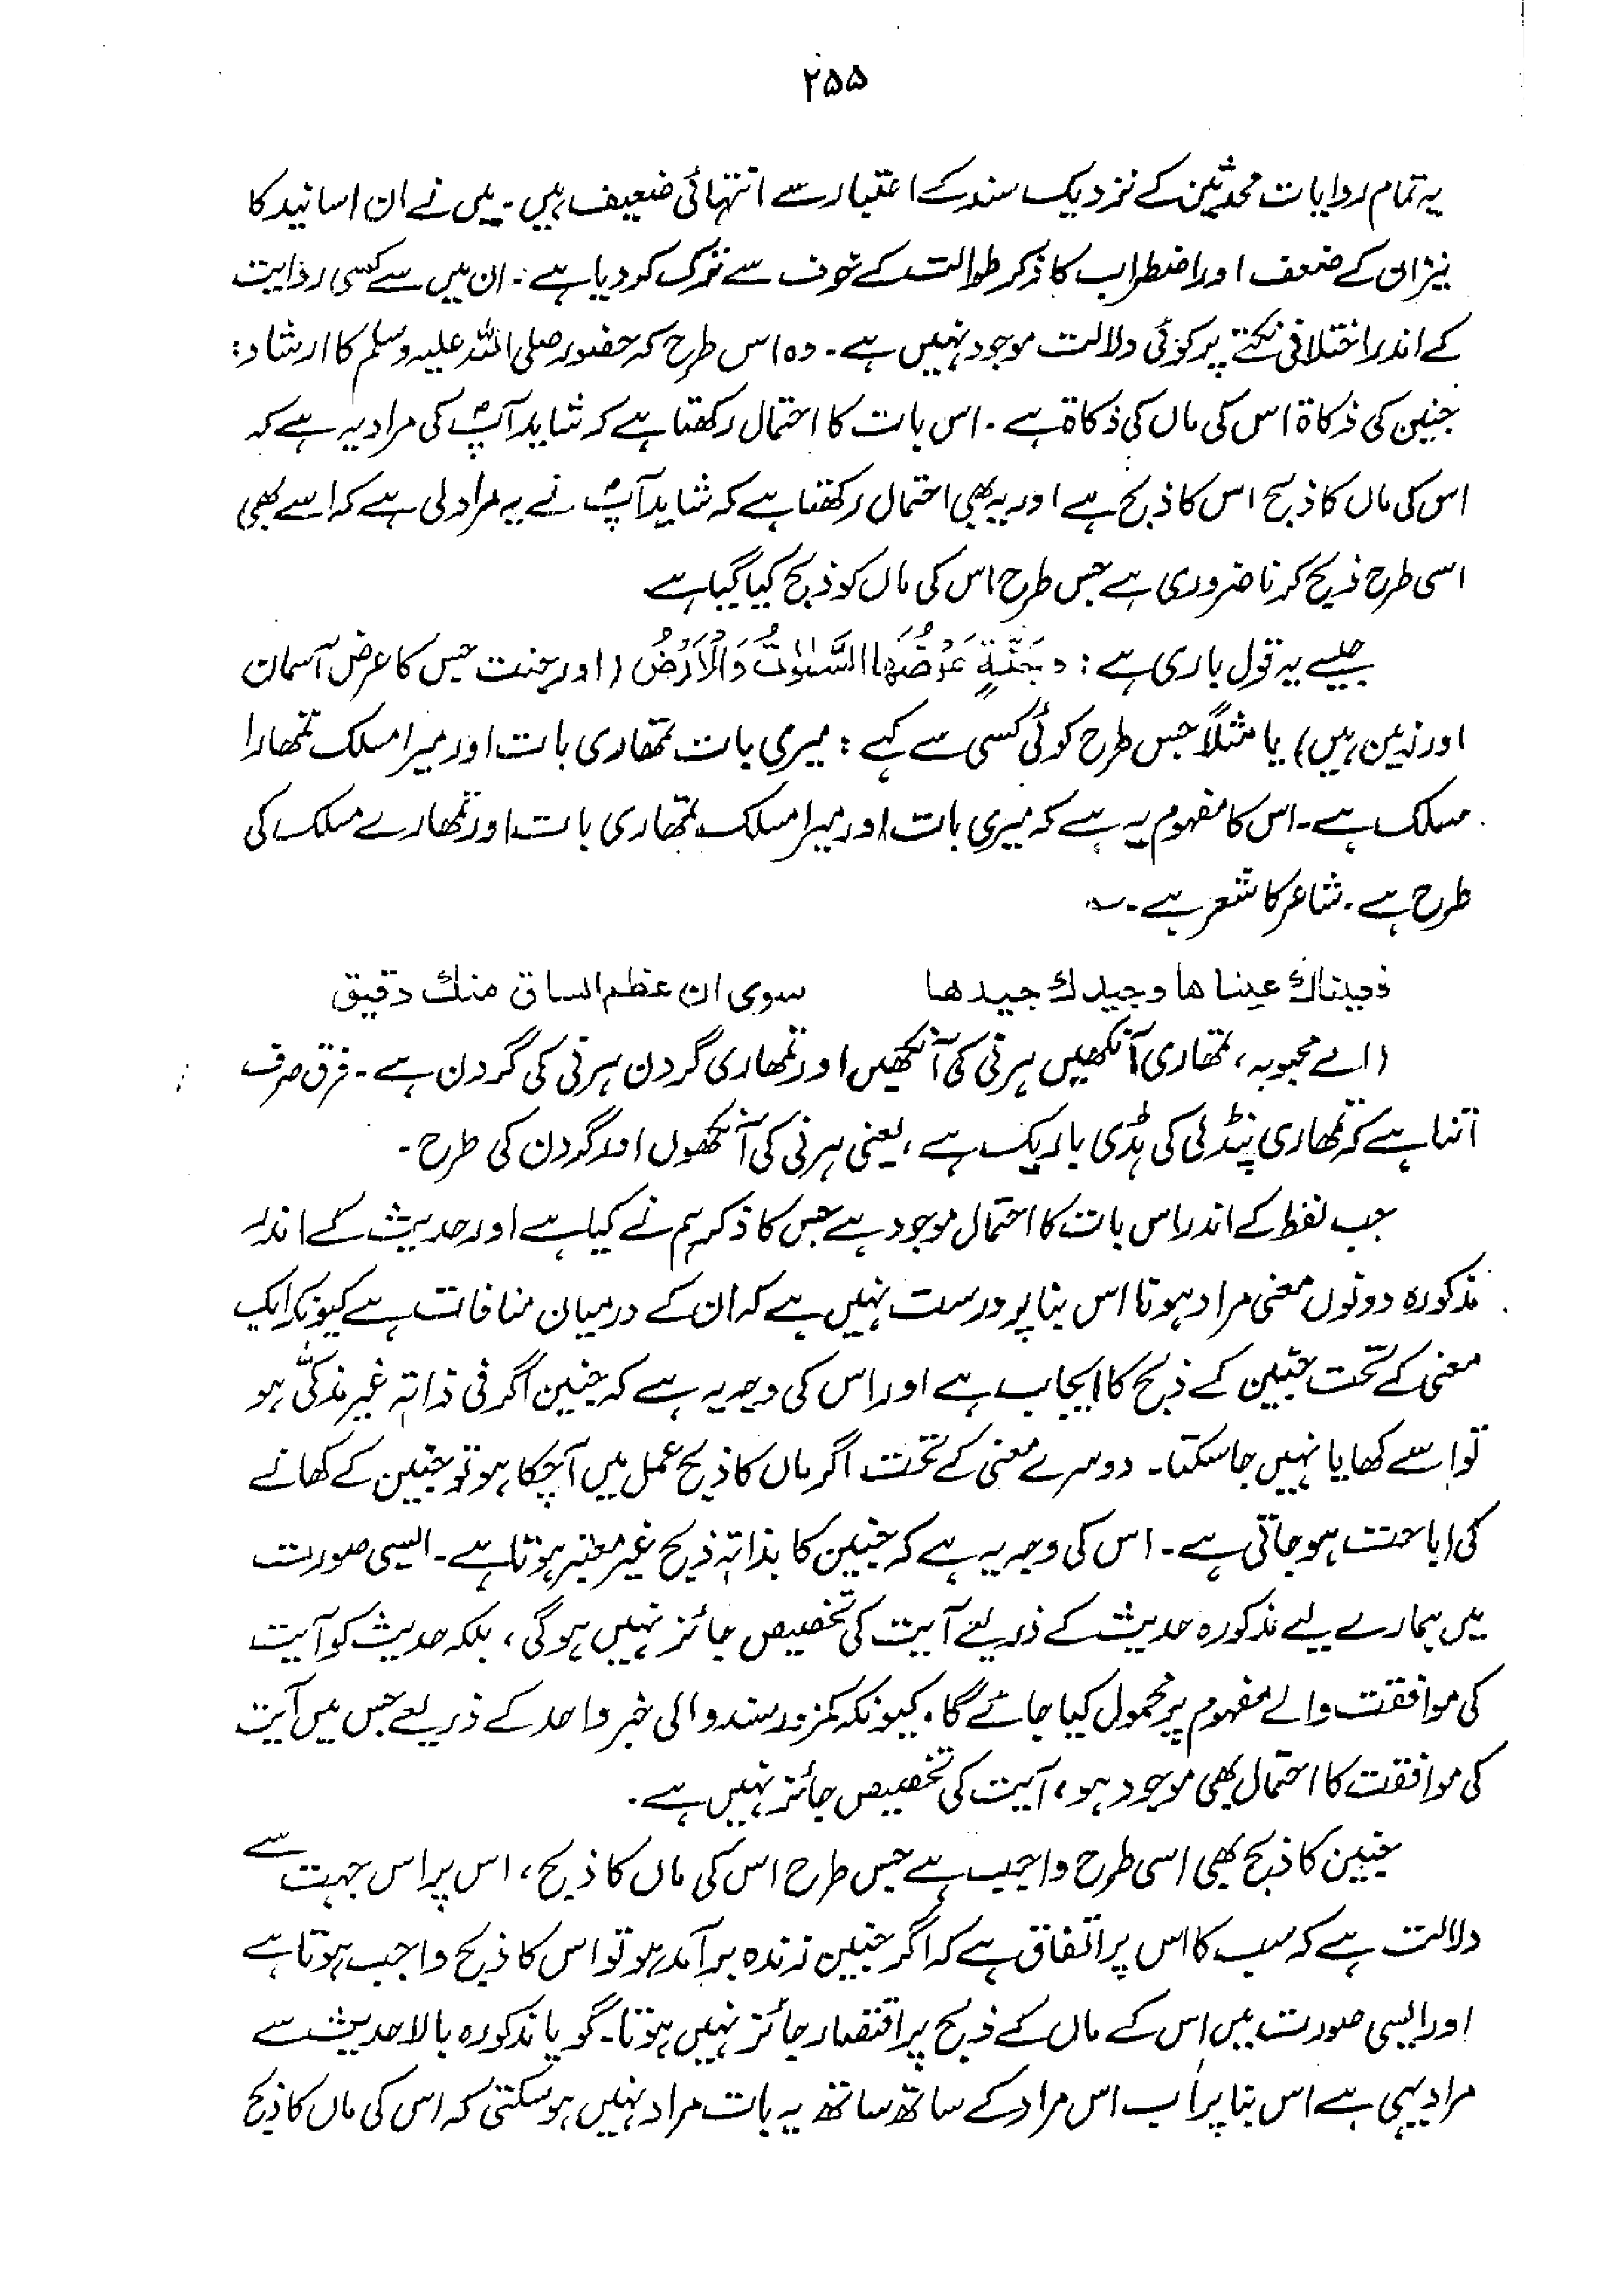 ۲۵۵
یہ تمام روایات محدثین کے نزدیک سند کے اعتبار سے انتہائی ضعیف ہیں۔ میں نے ان اسانید کا
نیز ان کے ضعف اور اضطراب کا ذکر طوالت کے خوف سے ترک کر دیا ہے۔ ان میں سے کسی روایت
کے اندر اختلافی نکتے پر کوئی دلالت موجود نہیں ہے۔ وہ اس طرح کہ حضور صلی اللہ علیہ وسلم کا ارشاد:
جنین کی ذکاۃ اس کی ماں کی ذکاۃ ہے۔ اس بات کا احتمال رکھتا ہے کہ شاید آپؐ کی مراد یہ ہے کہ
اس کی ماں کا ذبح اس کا ذبح ہے اور یہ بھی احتمال رکھتا ہے کہ شاید آپؐ نے یہ مراد لی ہے کہ اسے بھی
اسی طرح ذبح کرنا ضروری ہے جس طرح اس کی ماں کو ذبح کیا گیا ہے
جیسے یہ قول باری ہے: وَجَنَّةٍ عَرْضُهَا السَّمٰوٰتُ وَالْاَرْضُ (اور جنت جس کا عرض آسمان
اور زمین ہیں) یا مثلاً جس طرح کوئی کسی سے کہے: میری بات تمھاری بات اور میرا مسلک تمھارا
مسلک ہے۔ اس کا مفہوم یہ ہے کہ میری بات اور میرا مسلک تمھاری بات اور تمھارے مسلک کی
طرح ہے۔ شاعر کا شعر ہے۔ ؎
فجیناك عینا ها وجیدك جیدها سوى ان عظم الساق منك دقیق
(اے محبوبہ، تمھاری آنکھیں ہرنی کی آنکھیں اور تمھاری گردن ہرنی کی گردن ہے۔ فرق صرف
اتنا ہے کہ تمھاری پنڈلی کی ہڈی باریک ہے، یعنی ہرنی کی آنکھوں اور گردن کی طرح۔
جب لفظ کے اندر اس بات کا احتمال موجود ہے جس کا ذکر ہم نے کیا ہے اور حدیث کے اندر
مذکورہ دونوں معنی مراد ہونا اس بنا پر درست نہیں ہے کہ ان کے درمیان منافات ہے کیونکہ ایک
معنی کے تحت جنین کے ذبح کا ایجاب ہے اور اس کی وجہ یہ ہے کہ جنین اگر فی ذاتہٖ غیر مذکّٰی ہو
تو اسے کھایا نہیں جا سکتا۔ دوسرے معنی کے تحت اگر ماں کا ذبح عمل میں آچکا ہو تو جنین کے کھانے
کی اباحت ہو جاتی ہے۔ اس کی وجہ یہ ہے کہ جنین کا بذاتہٖ ذبح غیر معتبر ہوتا ہے۔ ایسی صورت
میں ہمارے لیے مذکورہ حدیث کے ذریعے آیت کی تخصیص جائز نہیں ہوگی، بلکہ حدیث کو آیت
کی موافقت والے مفہوم پر محمول کیا جائے گا۔ کیونکہ کمزور سند والی خبر واحد کے ذریعے جس میں آیت
کی موافقت کا احتمال بھی موجود ہو، آیت کی تخصیص جائز نہیں ہے۔
جنین کا ذبح بھی اسی طرح واجب ہے جس طرح اس کی ماں کا ذبح، اس پر اس جہت سے
دلالت ہے کہ سب کا اس پر اتفاق ہے کہ اگر جنین زندہ برآمد ہو تو اس کا ذبح واجب ہوتا ہے
اور ایسی صورت میں اس کے ماں کے ذبح پر اقتصار جائز نہیں ہوتا۔ گویا مذکورہ بالا حدیث سے
مراد یہی ہے اس بنا پر اب اس مراد کے ساتھ ساتھ یہ بات مراد نہیں ہو سکتی کہ اس کی ماں کا ذبح